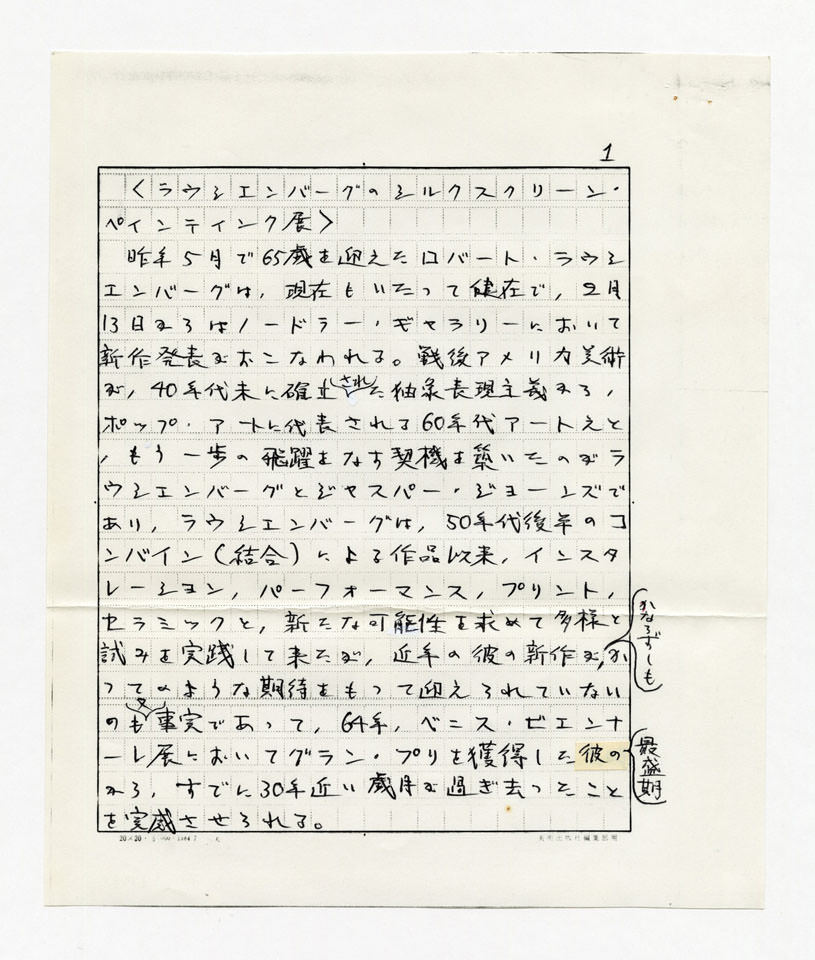 1
〈ラウシエンバーグのシルクスクリーン・
ペインティング展〉
昨年5月で65歳を迎えたロバート・ラウシ
エンバーグは，現在もいたって健在で，2月
13日からはノードラー・ギャラリーにおいて
新作発表がおこなわれる。戦後アメリカ美術
が，40年代末に確立された抽象表現主義から，
ポップ・アートに代表される60年代アートえと
，もう一歩の飛躍をなす契機を築いたのがラ
ウシエンバーグとジャスパー・ジョーンズで
あり，ラウシエンバーグは，50年代後半のコ
ンバイン（結合）による作品以来，インスタ
レーション，パーフォーマンス，プリント，
セラミックと，新たな可能性を求めて多様と
試みを実践して来たが，近年の彼の新作が，かならずしもか
つてのような期待をもって迎えられていない
のも又事実であって，64年，ベニス・ビエンナ
ーレ展においてグラン・プリを獲得した彼の最盛期
から，すでに30年近い歳月が過ぎ去ったこと
を実感させられる。
20×20